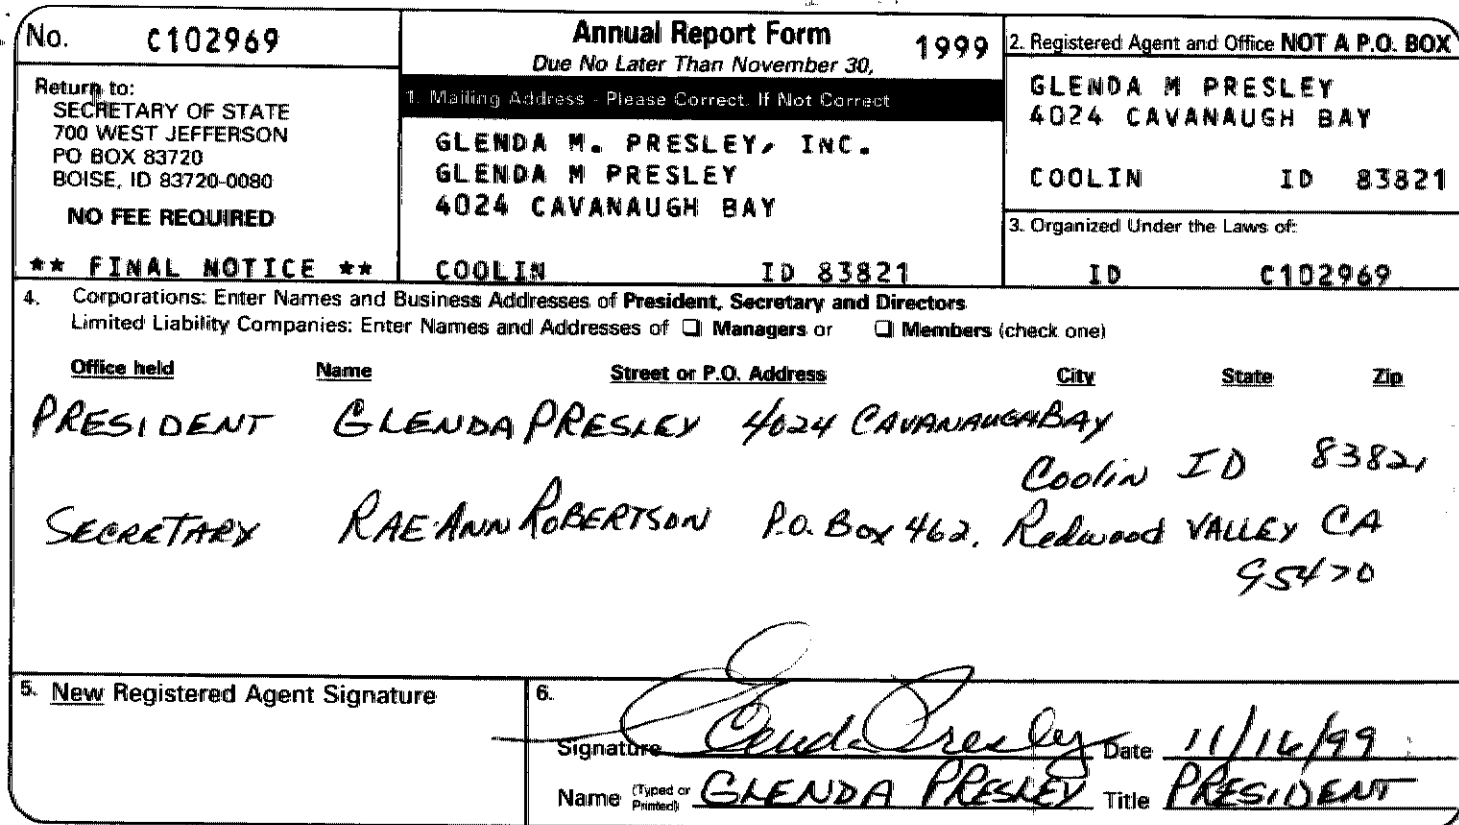 No. C102969
Return to:
SECRETARY OF STATE
700 WEST JEFFERSON
PO BOX 83720
BOISE, ID 83720-0080
NO FEE REQUIRED
** FINAL NOTICE **
Annual Report Form 1999
Due No Later Than November 30,
1. Mailing Address - Please Correct, If Not Correct
GLENDA M. PRESLEY, INC.
GLENDA M PRESLEY
4024 CAVANAUGH BAY
COOLIN ID 83821
2. Registered Agent and Office NOT A P.O. BOX
GLENDA M PRESLEY
4024 CAVANAUGH BAY
COOLIN ID 83821
3. Organized Under the Laws of:
ID C102969
4. Corporations: Enter Names and Business Addresses of President, Secretary and Directors
Limited Liability Companies: Enter Names and Addresses of ❏ Managers or ❏ Members (check one)
Office held Name Street or P.O. Address City State Zip
PRESIDENT GLENDA PRESLEY 4024 CAVANAUGH BAY
Coolin ID 83821
SECRETARY RAE·ANN ROBERTSON P.O. Box 462, Redwood VALLEY CA
95470
5. New Registered Agent Signature
6.
Signature Glenda Presley Date 11/16/99
Name (Typed or Printed) GLENDA PRESLEY Title PRESIDENT